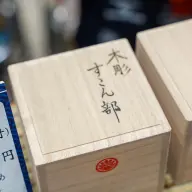 木彫
すこん部
円